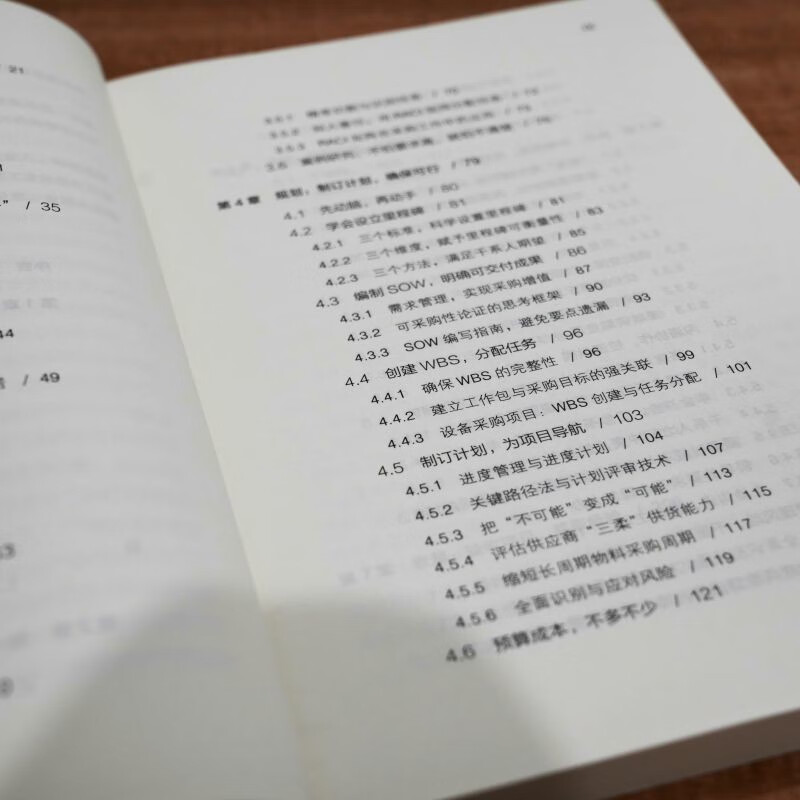 21
” / 35
44
/ 49
3.5.1 / 70
3.5.2
3.5.3
3.6
第4章 规划，制订计划，确保可行 / 79
4.1 先动脑，再动手 / 80
4.2 学会设立里程碑 / 81
4.2.1 三个标准，科学设置里程碑 / 81
4.2.2 三个维度，赋予里程碑可衡量性 / 83
4.2.3 三个方法，满足干系人期望 / 85
4.3 编制SOW，明确可交付成果 / 86
4.3.1 需求管理，实现采购增值 / 87
4.3.2 可采购性论证的思考框架 / 90
4.3.3 SOW编写指南，避免要点遗漏 / 93
4.4 创建WBS，分配任务 / 96
4.4.1 确保WBS的完整性 / 96
4.4.2 建立工作包与采购目标的强关联 / 99
4.4.3 设备采购项目：WBS创建与任务分配 / 101
4.5 制订计划，为项目导航 / 103
4.5.1 进度管理与进度计划 / 104
4.5.2 关键路径法与计划评审技术 / 107
4.5.3 把“不可能”变成“可能” / 113
4.5.4 评估供应商“三柔”供货能力 / 115
4.5.5 缩短长周期物料采购周期 / 117
4.5.6 全面识别与应对风险 / 119
4.6 预算成本，不多不少 / 121